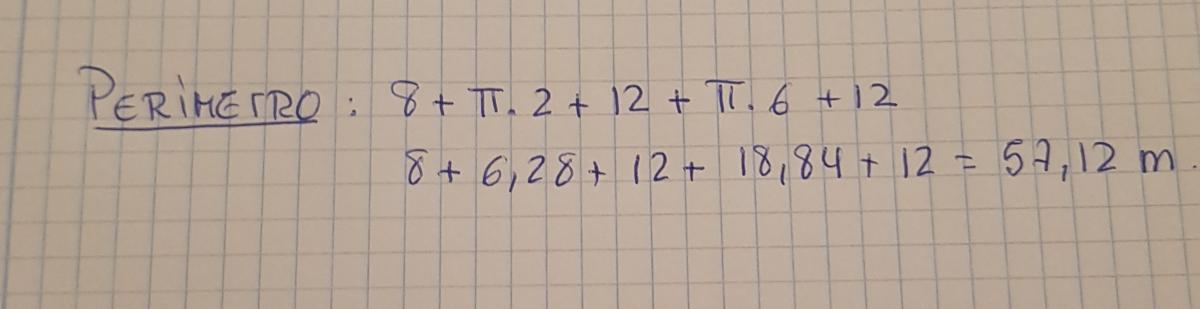 PERÍMETRO: 8 + π. 2 + 12 + π. 6 + 12
8 + 6,28 + 12 + 18,84 + 12 = 57,12 m.